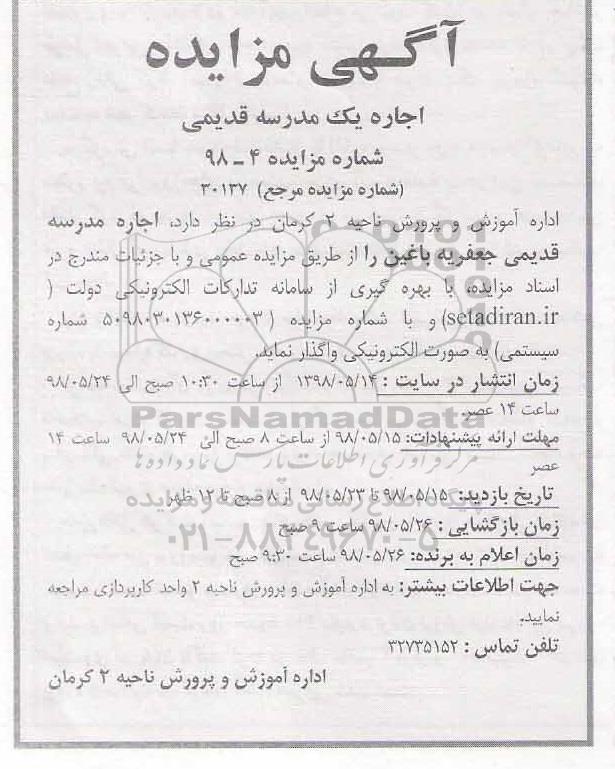 آگهی مزایده
اجاره یک مدرسه قدیمی
شماره مزایده ۴ ـ ۹۸
(شماره مزایده مرجع) ۳۰۱۳۷
اداره آموزش و پرورش ناحیه ۲ کرمان در نظر دارد، اجاره مدرسه
قدیمی جعفریه باغین را از طریق مزایده عمومی و با جزئیات مندرج در
اسناد مزایده، با بهره گیری از سامانه تدارکات الکترونیکی دولت (
setadiran.ir) و با شماره مزایده ( ۵۰۹۸۰۳۰۱۳۶۰۰۰۰۰۳ شماره
سیستمی) به صورت الکترونیکی واگذار نماید.
زمان انتشار در سایت : ۱۳۹۸/۰۵/۱۴ از ساعت ۱۰:۳۰ صبح الی ۹۸/۰۵/۲۴
ساعت ۱۴ عصر.
ParsNamadData
مهلت ارائه پیشنهادات: ۹۸/۰۵/۱۵ از ساعت ۸ صبح الی ۹۸/۰۵/۲۴ ساعت ۱۴
عصر
مرکز فرآوری اطلاعات پارس نماد داده ها
تاریخ بازدید: ۹۸/۰۵/۱۵ تا ۹۸/۰۵/۲۳ از ۸ صبح تا ۱۲ ظهر
پایگاه اطلاع رسانی مناقصه و مزایده
زمان بازگشایی : ۹۸/۰۵/۲۶ ساعت ۹ صبح
۰۲۱-۸۸۳۴۹۶۷۰-۵
زمان اعلام به برنده: ۹۸/۰۵/۲۶ ساعت ۹:۳۰ صبح
جهت اطلاعات بیشتر: به اداره آموزش و پرورش ناحیه ۲ واحد کارپردازی مراجعه
نمایید.
تلفن تماس : ۳۲۷۳۵۱۵۲
اداره آموزش و پرورش ناحیه ۲ کرمان